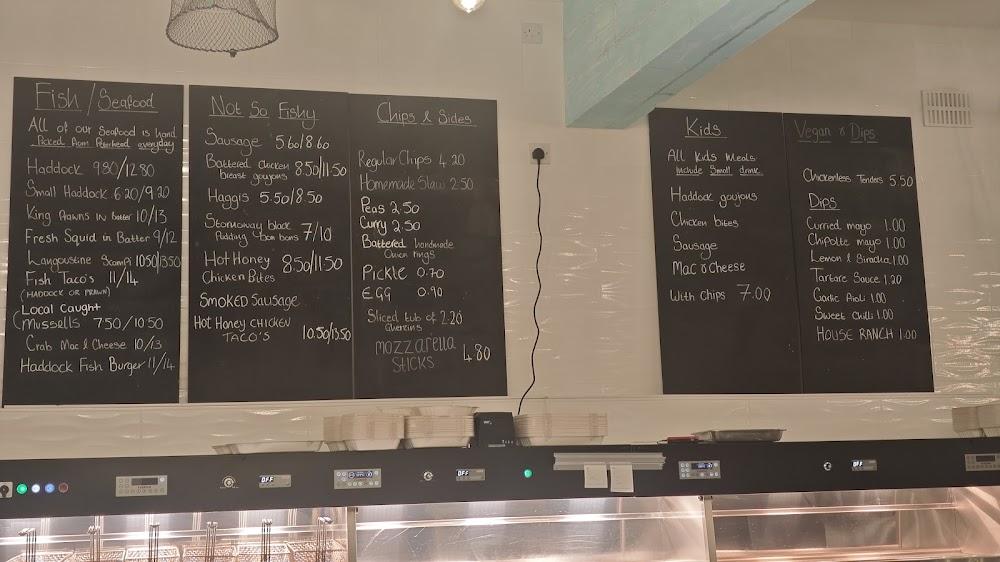 Fish / Seafood
All of our seafood is hand
Picked from Peterhead everyday
Haddock 9.80/12.80
Small Haddock 6.20/9.20
King Prawns in batter 10/13
Fresh Squid in Batter 9/12
Langoustine Scampi 10.50/13.50
Fish Taco's 11/14
(HADDOCK OR PRAWN)
Local Caught
Mussells 7.50/10.50
Crab Mac & Cheese 10/13
Haddock Fish Burger 11/14
Not So Fishy
Sausage 5.60/8.60
Battered Chicken
breast goujons 8.50/11.50
Haggis 5.50/8.50
Stornoway black
Pudding bon bons 7/10
Hot Honey
Chicken Bites 8.50/11.50
SMOKED SAUSAGE
HOT HONEY CHICKEN
TACO'S 10.50/13.50
Chips & Sides
Regular Chips 4.20
Homemade Slaw 2.50
Peas 2.50
Curry 2.50
Battered handmade
Onion rings
Pickle 0.70
EGG 0.90
Sliced tub of 2.20
Gherkins
MOZZARELLA
STICKS 4.80
Kids
All Kids Meals
Include Small drink
Haddock goujons
Chicken bites
Sausage
Mac & Cheese
With Chips 7.00
Vegan & Dips
Chickenless Tenders 5.50
Dips
Curried mayo 1.00
Chipotle mayo 1.00
Lemon & Siracha 1.00
Tartare Sauce 1.20
Garlic Aioli 1.00
Sweet Chilli 1.00
HOUSE RANCH 1.00
OFF
OFF
OFF